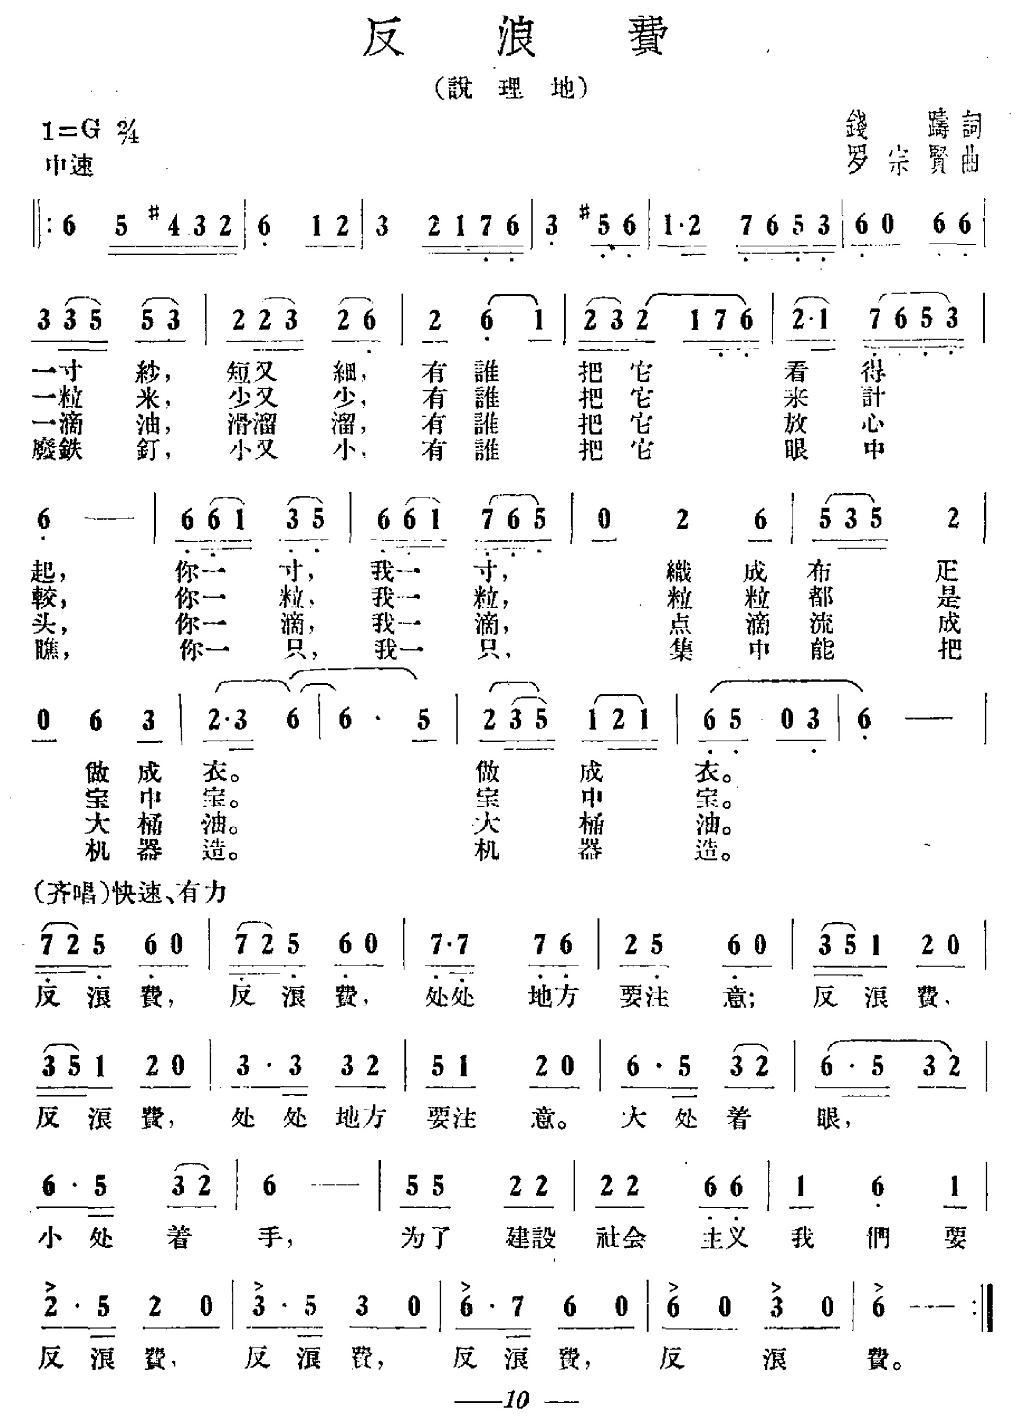 反浪費
(說理地)
1=G 2/4
錢 躊 詞
中速
罗宗賢曲
6 5 #4 3 2 | 6 1 2 | 3 2 1 7 6 | 3 #5 6 | 1·2 7 6 5 3 | 6 0 6 6
3 3 5 5 3 | 2 2 3 2 6 | 2 6 1 | 2 3 2 1 7 6 | 2·1 7 6 5 3
一寸 紗, 短又 細, 有 誰 把 它 看 得
一粒 米, 少又 少, 有 誰 把 它 来 計
一滴 油, 滑溜 溜, 有 誰 把 它 放 心
廢鉄 釘, 小又 小, 有 誰 把 它 眼 中
6 — | 6 6 1 3 5 | 6 6 1 7 6 5 | 0 2 6 | 5 3 5 2
起, 你一 寸, 我一 寸, 織 成 布 疋
較, 你一 粒, 我一 粒, 粒 粒 都 是
头, 你一 滴, 我一 滴, 点 滴 流 成
瞧, 你一 只, 我一 只, 集 中 能 把
0 6 3 | 2·3 6 | 6 · 5 | 2 3 5 1 2 1 | 6 5 0 3 | 6 —
做 成 衣。 做 成 衣。
宝 中 宝。 宝 中 宝。
大 桶 油。 大 桶 油。
机 器 造。 机 器 造。
(齐唱)快速、有力
7 2 5 6 0 | 7 2 5 6 0 | 7·7 7 6 | 2 5 6 0 | 3 5 1 2 0
反 浪 費, 反 浪 費, 处处 地方 要注 意; 反 浪 費,
3 5 1 2 0 | 3 · 3 3 2 | 5 1 2 0 | 6 · 5 3 2 | 6 · 5 3 2
反 浪 費, 处 处 地方 要注 意。 大 处 着 眼,
6 · 5 3 2 | 6 — | 5 5 2 2 | 2 2 6 6 | 1 6 1
小 处 着 手, 为了 建設 社会 主义 我 們 要
2 · 5 2 0 | 3 · 5 3 0 | 6 · 7 6 0 | 6 0 3 0 | 6 —
反 浪 費, 反 浪 費, 反 浪 費, 反 浪 費。
— 10 —